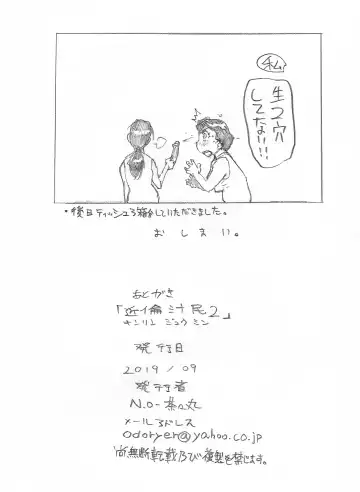 私
生2穴
してない!!!
・後日ティッシュ3箱分していただきました。
おしまい。
あとがき
「近倫汁民2」
キンリン ジュウ ミン
発行日
2019/09
発行者
N.O-茶々丸
メールアドレス
odoryer@yahoo.co.jp
尚無断転載及び複製を禁じます。